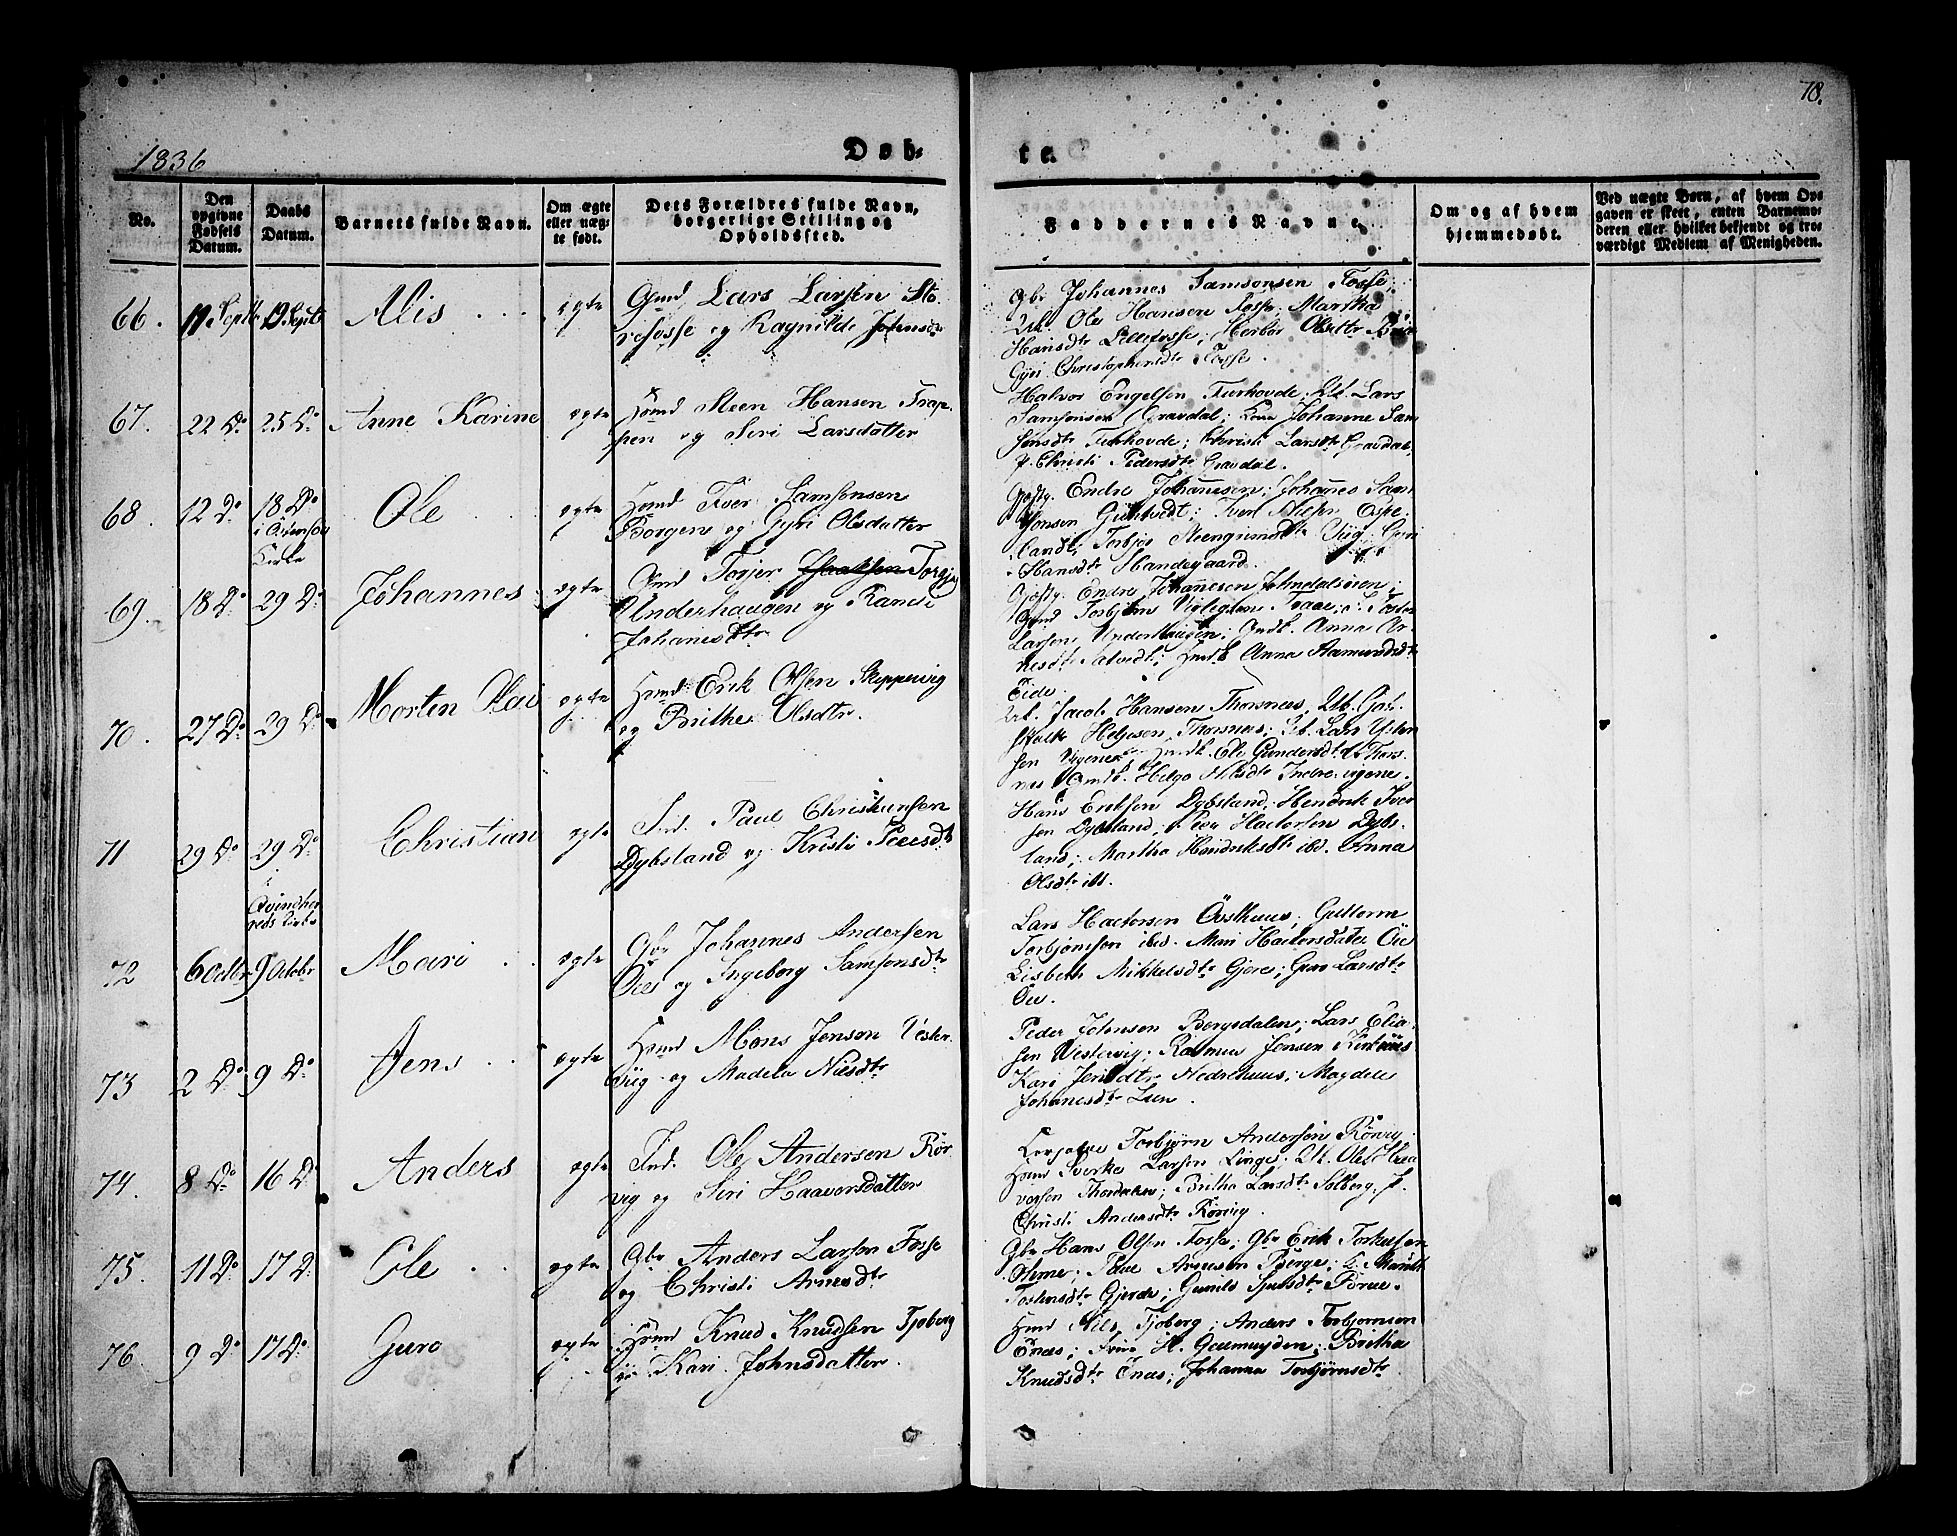 78.
1836
Døb-
te.
No.
Den opgivne Fødsels Datum.
Daabs Datum.
Barnets fulde Navn.
Om ægte eller uægte født.
Dets Forældres fulde Navn, borgerlige Stilling og Opholdssted.
Faddernes Navne.
Om og af hvem hjemmedøbt.
Ved uægte Børn, af hvem Opgaven er skeet, enten Barnemoderen eller hvilket bekjendt og troværdigt Medlem af Menigheden.
66. 11 Septb 19 Septb Alis ægte
Gmd Lars Larsen Sto-
refosse og Ragnilde Johnsdr
Gbr Johannes Samsonsen Fosse;
Ole Hansen Fosse; Martha
Hansdtr Lillefosse; Herbor Olsdtr
Gyri Christophersdtr Fosse.
67. 22 Do 25 Do Anne Karine ægte
Hmd Steen Hansen Trap-
pen og Siri Larsdatter
Halvor Engelsen Turhovde; Uk. Lars
Samsonsen Gravdal; Kona Johanne Sam-
sonsdtr Turhovde; Christi Larsdtr Gravdal,
p. Christi Pedersdtr Gravdal.
68. 12 Do 18 Do Ole ægte
i
Kirke
Hmd Iver Samsonsen
Borgen og Gyri Olsdatter
Gjæstg. Endre Johannesen; Johannes Sam-
sonsen
landt; Torbjør Steengrimsdtr Viig; Guri
Hansdtr Handegaard.
69. 18 Do 29 Do Johannes ægte
Gmd Torjer Torgj
Underhaugen og Randi
Johanesdtr
Gjæstg. Endre Johannesen Holmedalsøren;
Gmd Torbjørn Viglegsen Traae;
Larsen Underhaugen; Gmdk. Anna Ar-
nesdtr Hmdk Anna Aamundsdtr
Eide.
70. 27 Do 29 Do Morten ægte
Hmd Erik Olsen Skeppevig
og Brithe Olsdtr.
Uk. Jacob Hansen Thorsnes, Uk.
Helgesen, Thorsnes; Uk. Lars Østen-
sen Vigene; Hmdk. Eli Gundersdtr Thors-
nes Gmdk. Helga Nilsdtr Indrevigene.
71 29 Do 29 Do Christian ægte
i
Qvindher-
reds Kirke
Ind. Paul Christiansen
Dybsland og Kristi Peersdtr
Hans Eriksen Dybsland; Hendrik Iver-
sen Dybsland; Peer Hactorsen Dybs-
land; Martha Hendriksdtr ibd. Anna
Olsdtr ibd.
72 6 Octbr 9 Octobr Mari ægte
Gbr Johannes Andersen
Øie og Ingeborg Samsonsdtr
Lars Hactorsen Østhuus; Guttorm
Torbjørnsen ibd. Mari Hactorsdatter Øie
Lisbeth Mikkelsdtr Gjere; Guro Larsdtr
Øie.
73 2 Do 9 Do Jens ægte
Hmd Mons Jensen Vester-
viig og Madela Nilsdtr
Peder Johnsen Borgsdalen; Lars Elia-
sen Vestervig; Rasmus Jensen
Kari Jensdtr Nedrehuus; Magdele
Johanesdtr Lien.
74. 8 Do 16 Do Anders ægte
Ind. Ole Andersen Rør-
vig og Siri Haaversdatter
Torbjørn Andersen Rørvig
Hmd Sverke Larsen Linge; Uk. Ole Haa-
versen; Britha Larsdtr Solberg, p.
Christi Andersdtr Rørvig.
75. 11 Do 17 D Ole ægte
Gbr Anders Larsen Fosse
og Christi Arnesdtr
Gbr Hans Olsen Fosse; Gbr Erik Torkelsen
Arnesen Børge;
Torkelsdtr Gjerde; Gunild Sjursdtr
76. 9 Do 17 Do Guro ægte
Hmd Knud Knudsen Tjoberg
og Kari Johnsdatter.
Hmd Nils Tjoberg; Anders Torbjørnsen
Enæs; H. Gaumuyden; Britha
Knudsdtr Enæs; Johanna Torbjørnsdtr